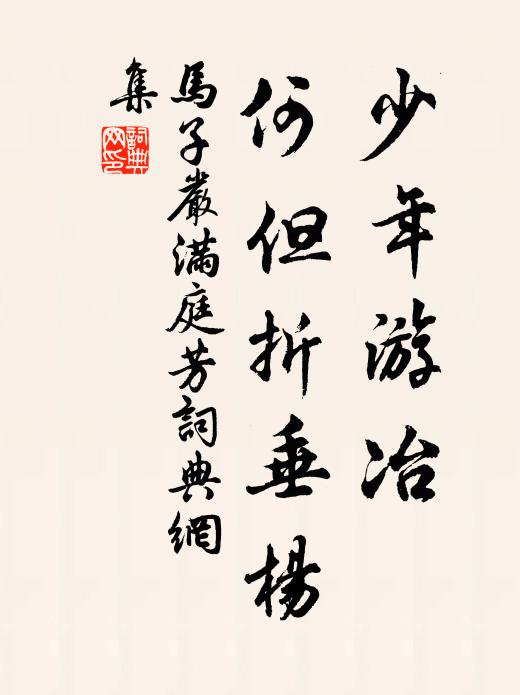 少年游冶
何但折垂楊
馬子嚴滿庭芳詞典網
集
詞典網印